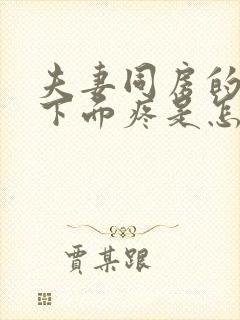 夫妻同房的
下面疼是怎
贾某跟